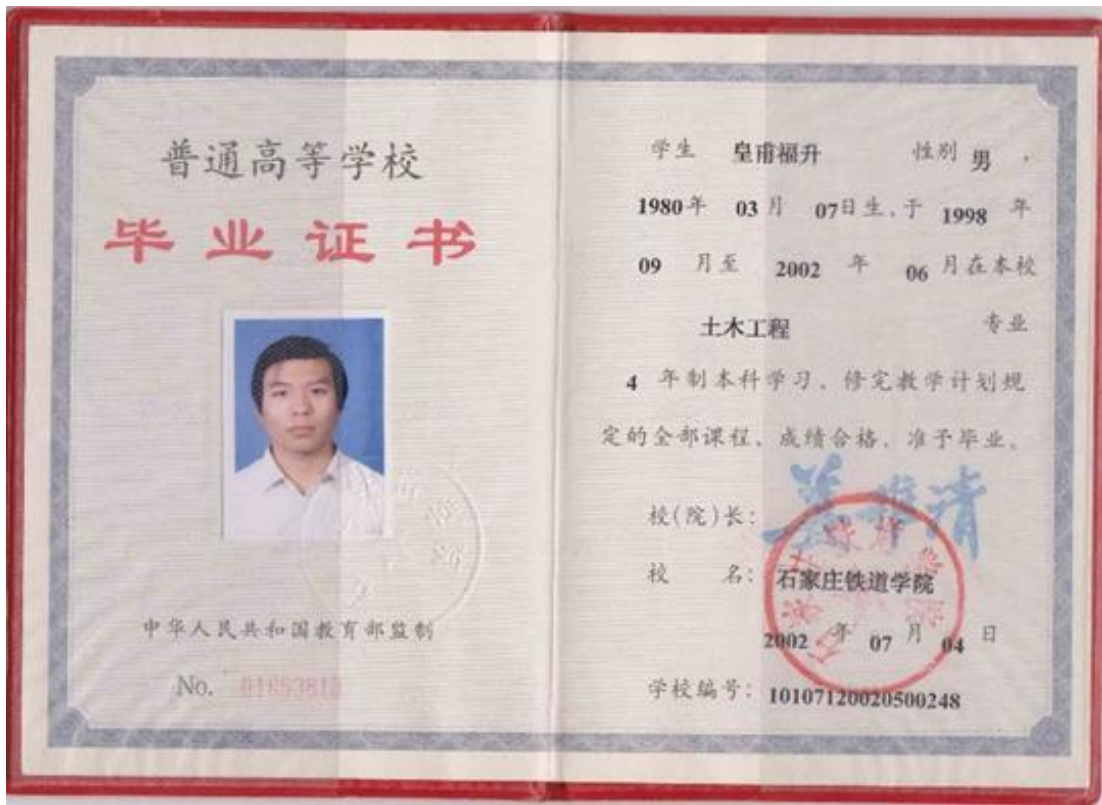 普通高等学校
毕业证书
中华人民共和国教育部监制
No.
学生 皇甫福升 性别 男 ,
1980年 03月 07日生,于 1998 年
09 月至 2002 年 06 月在本校
土木工程 专业
4 年制本科学习、修完教学计划规
定的全部课程、成绩合格、准予毕业。
校(院)长:
校 名: 石家庄铁道学院
2002 年 07 月 04 日
学校编号: 10107120020500248